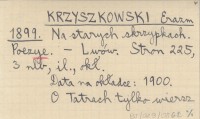 KRZYSZKOWSKI Erazm
1899. Na starych skrzypkach.
Poezye. - Lwów. Stron 225,
3 nlb, il., okł.
Data na okładce: 1900.
O Tatrach tylko wiersz